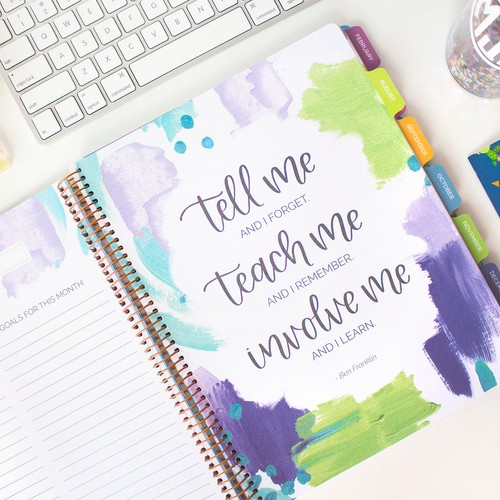 tell me
AND I FORGET.
teach me
AND I REMEMBER.
involve me
AND I LEARN.
- Ben Franklin
GOALS FOR THIS MONTH:
FEBRUARY
AUGUST
SEPTEMBER
OCTOBER
NOVEMBER
caps lock
shift
fn
control
option
command
command
option